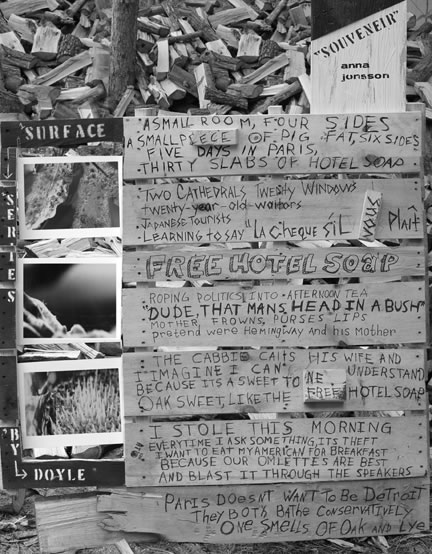 "SOUVENEIR"
anna
jonsson
SURFACE
SERIES
BY
DOYLE
A SMALL ROOM, FOUR SIDES
A SMALL PIECE OF PIG FAT, SIX SIDES
FIVE DAYS IN PARIS,
THIRTY SLABS OF HOTEL SOAP
TWO CATHEDRALS TWENTY WINDOWS
twenty-year-old-waitors
JAPANESE TOURISTS
LEARNING TO SAY "LA CHEQUE SIL VOUS Plait
FREE HOTEL SOAP
ROPING POLITICS INTO AFTERNOON TEA
"DUDE, THAT MANS HEAD IN A BUSH"
MOTHER FROWNS, PURSES LIPS
pretend were HEMINGWAY and his Mother
THE CABBIE CALLS HIS WIFE AND
I IMAGINE I CAN UNDERSTAND
BECAUSE ITS A SWEET TONE
OAK SWEET, LIKE THE FREE HOTEL SOAP
I STOLE THIS MORNING
EVERYTIME I ASK SOMETHING, ITS THEFT
I WANT TO EAT MY AMERICAN FOR BREAKFAST
BECAUSE OUR OMLETTES ARE BEST
AND BLAST IT THROUGH THE SPEAKERS
PARIS DOESNT WANT TO BE DETROIT
THEY BOTH BATHE CONSERVATIVELY
ONE SMELLS OF OAK AND LYE